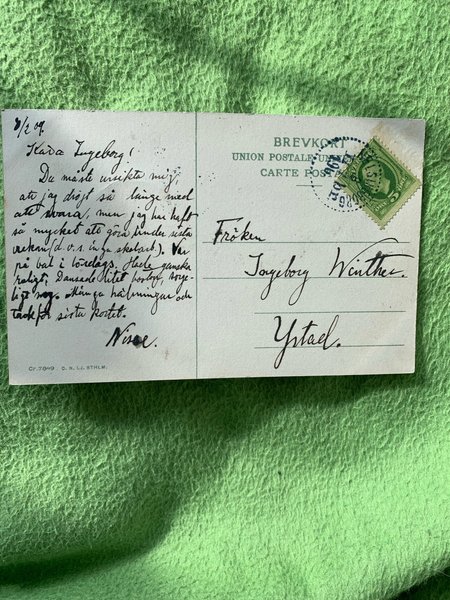 8/2 09.
Kära Ingeborg!
Du måste ursäkta mig,
att jag dröjt så länge med
att svara, men jag har haft
så mycket att göra under sista
veckan (d. v. s. inga skolarb.). Var
på bal i lördags. Hade ganska
roligt. Dansade litet boston,
nog. Många hälsningar och
tack för sista kortet.
BREVKORT
UNION POSTALE UNIVERSELLE
CARTE POSTALE
Fröken
Ingeborg Winther.
Ystad.
Cr. 7809 C. N. Lj. STHLM.